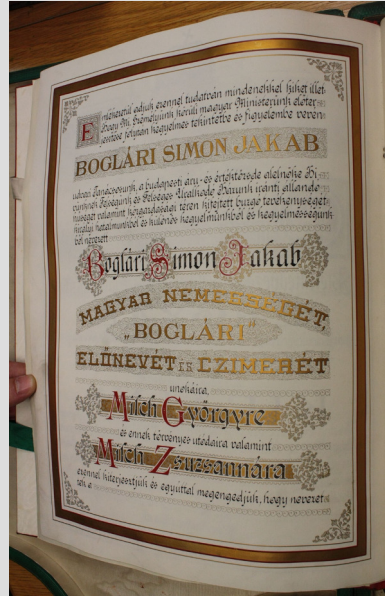 Emlékezetül adjuk ezennel tudatván mindenekkel kiket illet,
hogy Mi, Személyünk körüli magyar Ministerünk előter-
jesztése folytán kegyelmes tekintetbe és figyelembe vevén
BOGLÁRI SIMON JAKAB
udvari tanácsosunk, a budapesti áru- és értéktőzsde elnöke Hí-
vünknek Felségünk és Felséges Uralkodó Házunk iránti állandó
hűségét valamint közgazdasági téren kifejtett buzgó tevékenységét
királyi hatalmunkból és különös kegyelmünkből és kegyelmességünk-
ből nevezett
Boglári Simon Jakab
MAGYAR NEMESSÉGÉT,
„BOGLÁRI”
ELŐNEVÉT ÉS CZIMERÉT
unokáira,
Milch Györgyre
és ennek törvényes utódaira valamint
Milch Zsuzsannára
ezennel kiterjesztjük és egyúttal megengedjük, hogy nevezet-
tek a